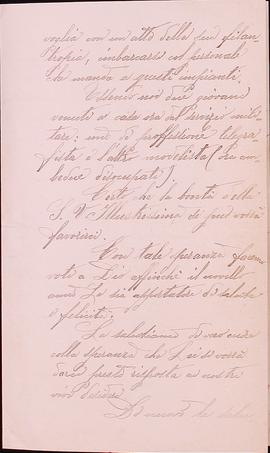 voglia con un atto della sua filan-
tropia, imbarcarsi col personale
che manda a questi impianti.
Essendo noi due giovani
venuti a casa ora dal servizio mili-
tare: uno di proffessione telegra-
fista e l'altro modellista (ora am-
bedue disoccupati)
Certo che la bontà della
S. V. Illustrissima di piú vorrà
favorirci.
Con tale speranza facciamo
voti a Dio affinchè il novello
anno Le sia apportatore di salute
e felicità.
La salutiamo di vero cuore
colla speranza che Lei ci vorrà
dare presto risposta a nostro
vivo desiderio